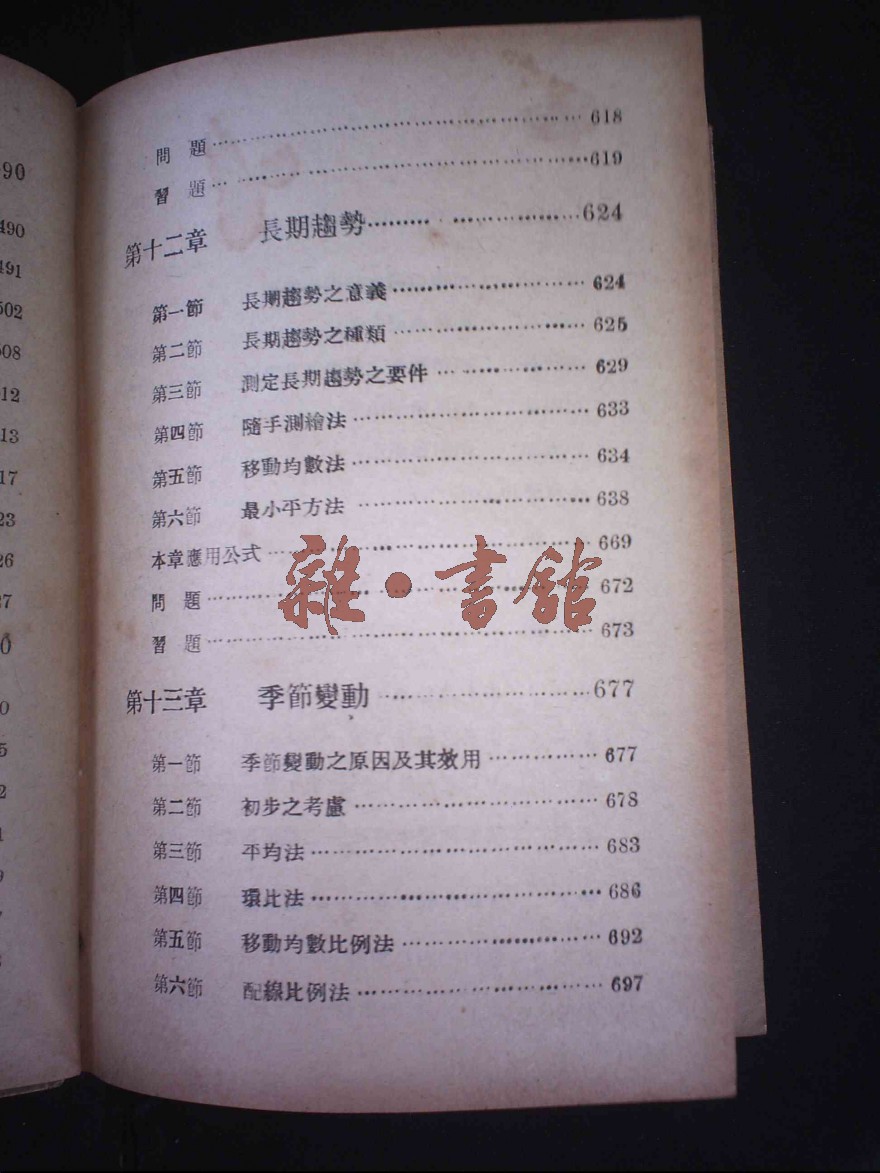 90
490
491
502
508
12
13
17
23
26
27
0
0
5
2
1
9
7
3
問 題 618
習 題 619
第十二章 長期趨勢 624
第一節 長期趨勢之意義 624
第二節 長期趨勢之種類 625
第三節 測定長期趨勢之要件 629
第四節 隨手測繪法 633
第五節 移動均數法 634
第六節 最小平方法 638
本章應用公式 669
問 題 672
習 題 673
雜·書館
第十三章 季節變動 677
第一節 季節變動之原因及其效用 677
第二節 初步之考慮 678
第三節 平均法 683
第四節 環比法 686
第五節 移動均數比例法 692
第六節 配線比例法 697